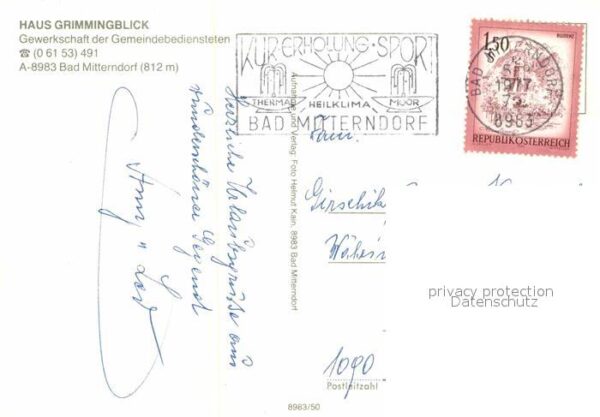 HAUS GRIMMINGBLICK
Gewerkschaft der Gemeindebediensteten
☎ (0 61 53) 491
A-8983 Bad Mitterndorf (812 m)
KUR·ERHOLUNG·SPORT
THERMAL HEILKLIMA MOOR
BAD MITTERNDORF
1.50
REPUBLIK ÖSTERREICH
BAD MITTERNDORF
1977
8983
Herzliche Urlaubsgrüße aus
wunderschöner Gegend
Aufnahme und Verlag: Foto Helmut Kain, 8983 Bad Mitterndorf
Fam.
1090
Postleitzahl
8983/50
privacy protection
Datenschutz